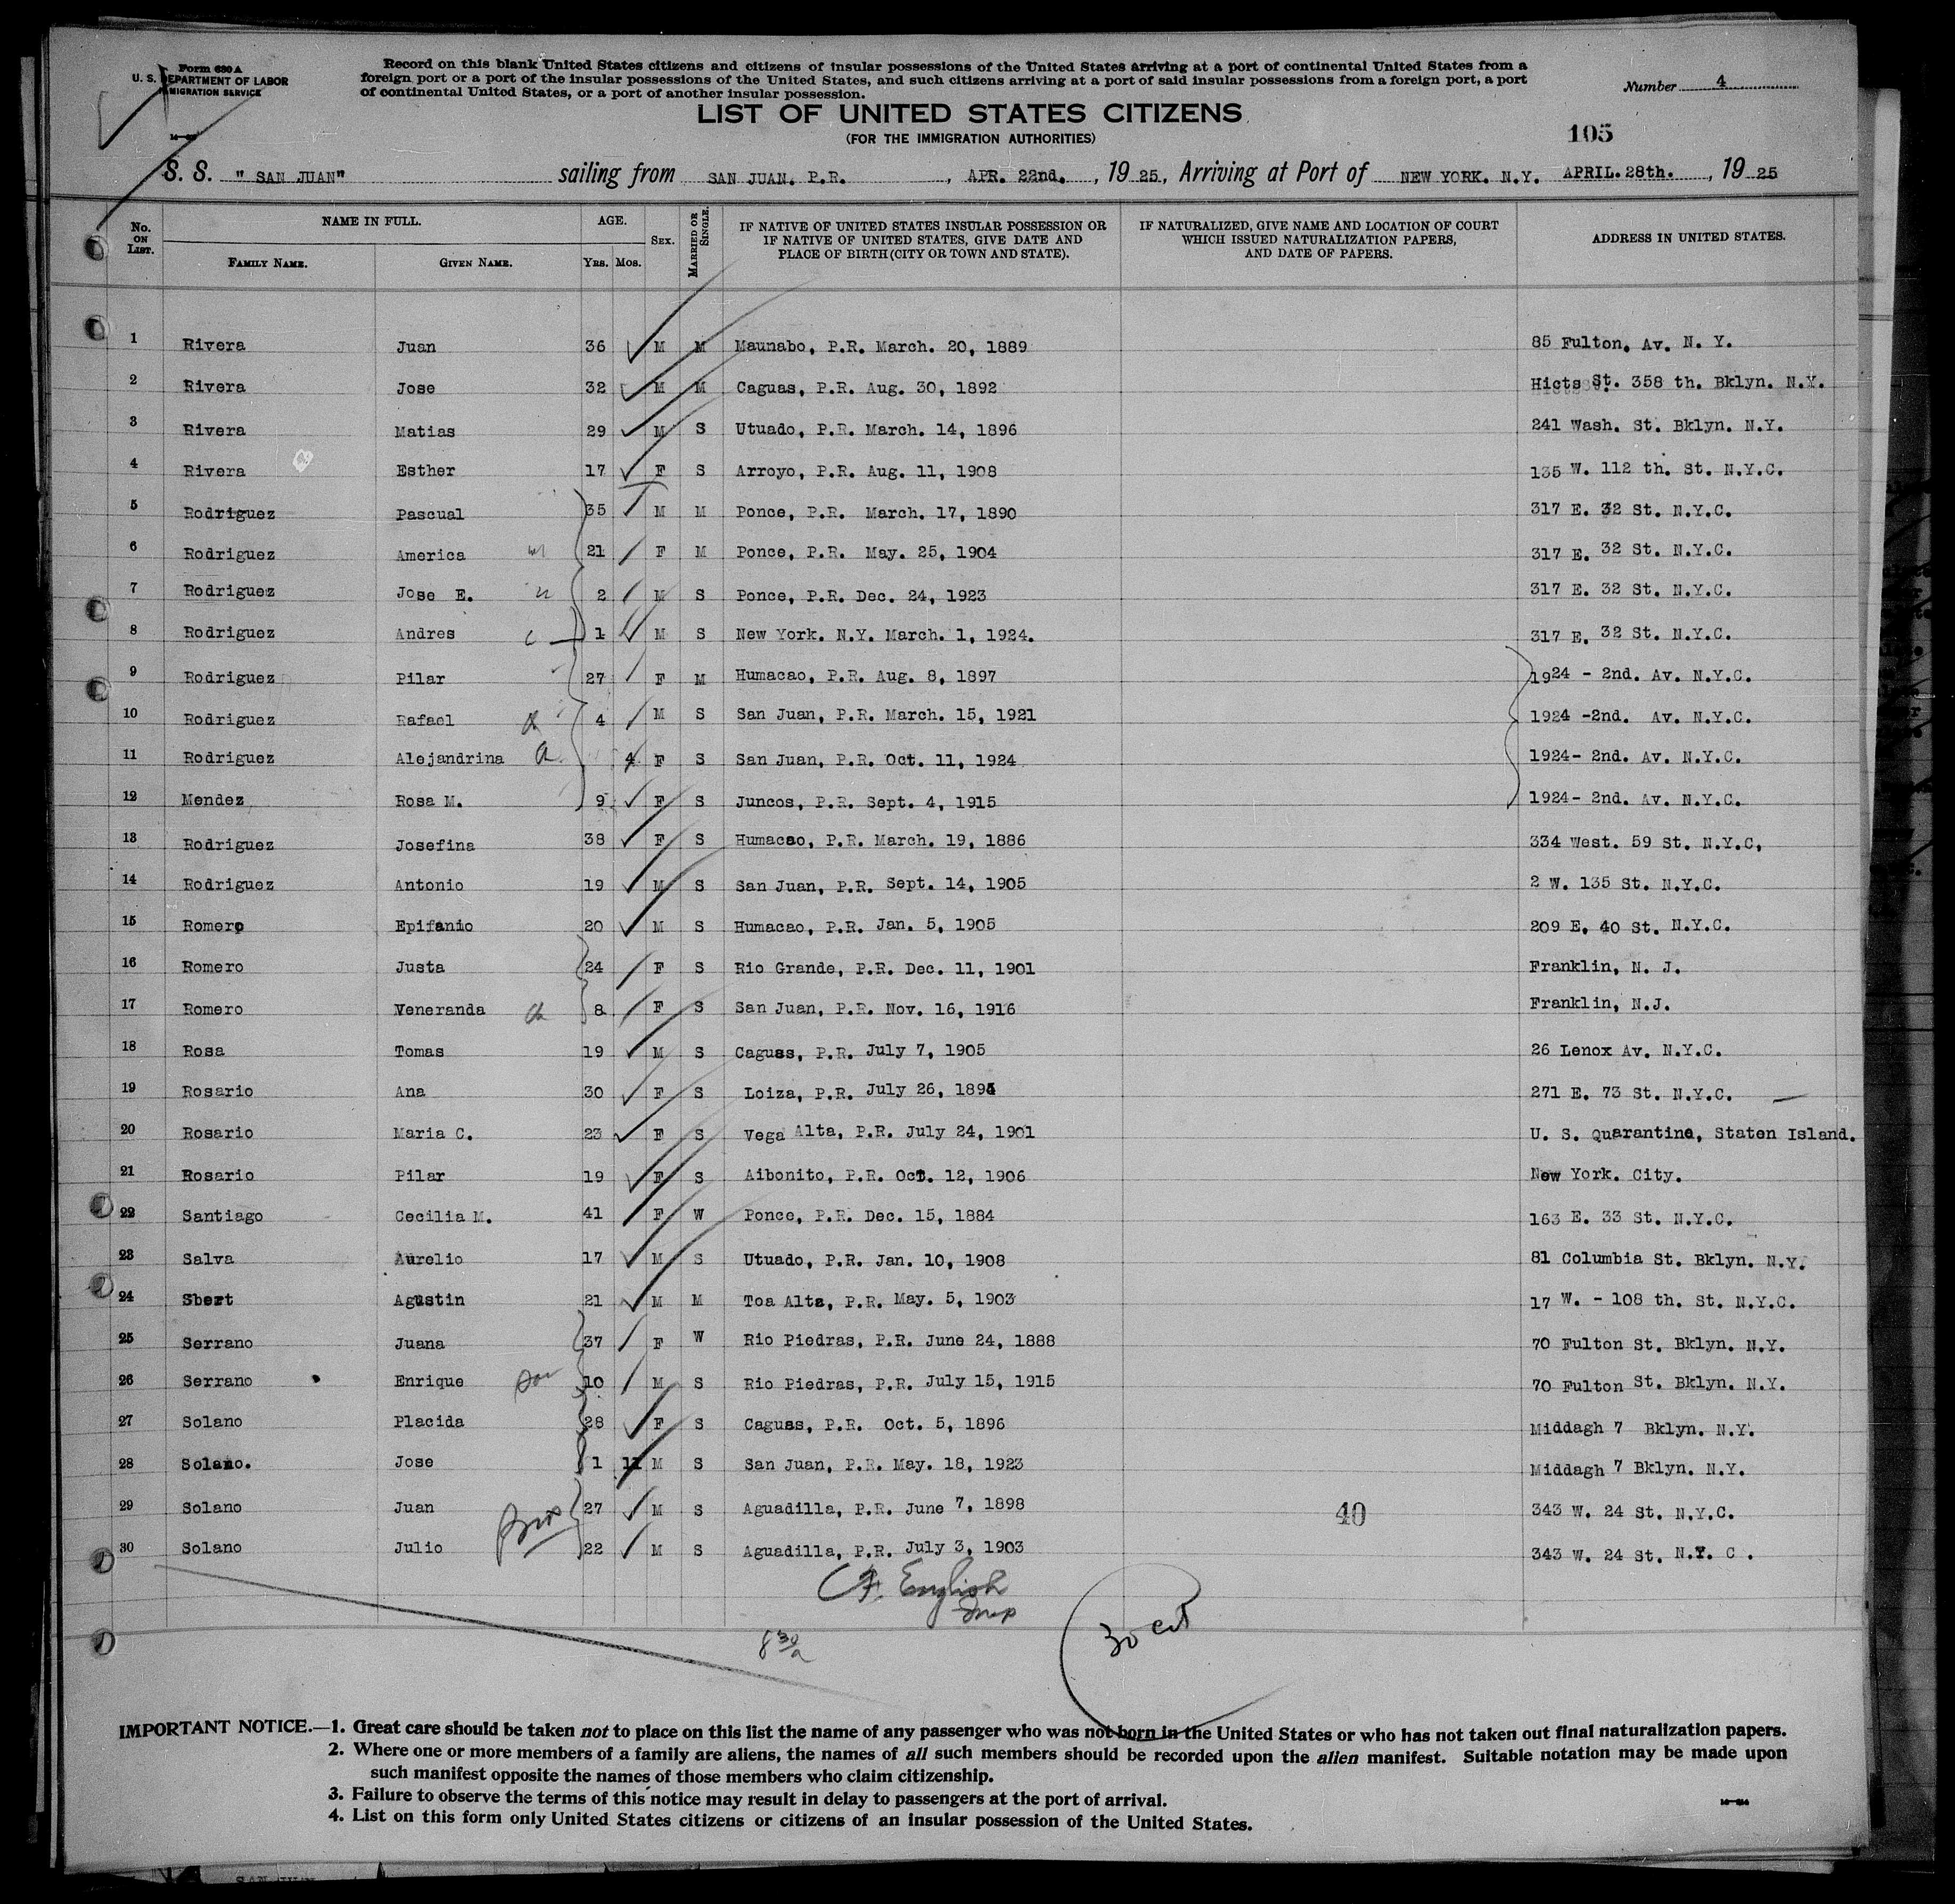 Form 630 A
U. S. DEPARTMENT OF LABOR
IMMIGRATION SERVICE
Record on this blank United States citizens and citizens of insular possessions of the United States arriving at a port of continental United States from a
foreign port or a port of the insular possessions of the United States, and such citizens arriving at a port of said insular possessions from a foreign port, a port
of continental United States, or a port of another insular possession.
Number 4
LIST OF UNITED STATES CITIZENS
(FOR THE IMMIGRATION AUTHORITIES)
105
S. S. "SAN JUAN" sailing from SAN JUAN. P.R., APR. 22nd., 1925, Arriving at Port of NEW YORK. N.Y. APRIL.28th., 1925
No. ON LIST. NAME IN FULL. FAMILY NAME. GIVEN NAME. AGE. YRS. MOS. SEX. MARRIED OR SINGLE. IF NATIVE OF UNITED STATES INSULAR POSSESSION OR IF NATIVE OF UNITED STATES, GIVE DATE AND PLACE OF BIRTH (CITY OR TOWN AND STATE). IF NATURALIZED, GIVE NAME AND LOCATION OF COURT WHICH ISSUED NATURALIZATION PAPERS, AND DATE OF PAPERS. ADDRESS IN UNITED STATES.
1 Rivera Juan 36 M M Maunabo, P.R. March. 20, 1889 85 Fulton. Av. N. Y.
2 Rivera Jose 32 M M Caguas, P.R. Aug. 30, 1892 Hicts St. 358 th. Bklyn. N.Y.
3 Rivera Matias 29 M S Utuado, P.R. March. 14, 1896 241 Wash. St. Bklyn. N.Y.
4 Rivera Esther 17 F S Arroyo, P.R. Aug. 11, 1908 135 W. 112 th. St. N.Y.C.
5 Rodriguez Pascual 35 M M Ponce, P.R. March. 17, 1890 317 E. 32 St. N.Y.C.
6 Rodriguez America 21 F M Ponce, P.R. May. 25, 1904 317 E. 32 St. N.Y.C.
7 Rodriguez Jose E. 2 M S Ponce, P.R. Dec. 24, 1923 317 E. 32 St. N.Y.C.
8 Rodriguez Andres 1 M S New York. N.Y. March. 1, 1924. 317 E. 32 St. N.Y.C.
9 Rodriguez Pilar 27 F M Humacao, P.R. Aug. 8, 1897 1924 - 2nd. Av. N.Y.C.
10 Rodriguez Rafael 4 M S San Juan, P.R. March. 15, 1921 1924 -2nd. Av. N.Y.C.
11 Rodriguez Alejandrina 4 F S San Juan, P.R. Oct. 11, 1924 1924- 2nd. Av. N.Y.C.
12 Mendez Rosa M. 9 F S Juncos, P.R. Sept. 4, 1915 1924- 2nd. Av. N.Y.C.
13 Rodriguez Josefina 38 F S Humacao, P.R. March. 19, 1886 334 West. 59 St. N.Y.C,
14 Rodriguez Antonio 19 M S San Juan, P.R. Sept. 14, 1905 2 W. 135 St. N.Y.C.
15 Romero Epifanio 20 M S Humacao, P.R. Jan. 5, 1905 209 E. 40 St. N.Y.C.
16 Romero Justa 24 F S Rio Grande, P.R. Dec. 11, 1901 Franklin, N. J.
17 Romero Veneranda ch 8 F S San Juan, P.R. Nov. 16, 1916 Franklin, N.J.
18 Rosa Tomas 19 M S Caguas, P.R. July 7, 1905 26 Lenox Av. N.Y.C.
19 Rosario Ana 30 F S Loiza, P.R. July 26, 1894 271 E. 73 St. N.Y.C.
20 Rosario Maria C. 23 F S Vega Alta, P.R. July 24, 1901 U. S. Quarantine, Staten Island.
21 Rosario Pilar 19 F S Aibonito, P.R. Oct. 12, 1906 New York. City.
22 Santiago Cecilia M. 41 F W Ponce, P.R. Dec. 15, 1884 163 E. 33 St. N.Y.C.
23 Salva Aurelio 17 M S Utuado, P.R. Jan. 10, 1908 81 Columbia St. Bklyn. N.Y.
24 Sbert Agustin 21 M M Toa Alta, P.R. May. 5, 1903 17 W. - 108 th. St. N.Y.C.
25 Serrano Juana 37 F W Rio Piedras, P.R. June 24, 1888 70 Fulton St. Bklyn. N.Y.
26 Serrano Enrique son 10 M S Rio Piedras, P.R. July 15, 1915 70 Fulton St. Bklyn. N.Y.
27 Solano Placida 28 F S Caguas, P.R. Oct. 5, 1896 Middagh 7 Bklyn. N.Y.
28 Solano. Jose 1 11 M S San Juan, P.R. May. 18, 1923 Middagh 7 Bklyn. N.Y.
29 Solano Juan 27 M S Aguadilla, P.R. June 7, 1898 40 343 W. 24 St. N.Y.C.
30 Solano Julio Bros 22 M S Aguadilla, P.R. July 3, 1903 343 W. 24 St. N.Y. C .
English
Insp
30 cit
IMPORTANT NOTICE.—1. Great care should be taken not to place on this list the name of any passenger who was not born in the United States or who has not taken out final naturalization papers.
2. Where one or more members of a family are aliens, the names of all such members should be recorded upon the alien manifest. Suitable notation may be made upon
such manifest opposite the names of those members who claim citizenship.
3. Failure to observe the terms of this notice may result in delay to passengers at the port of arrival.
4. List on this form only United States citizens or citizens of an insular possession of the United States.